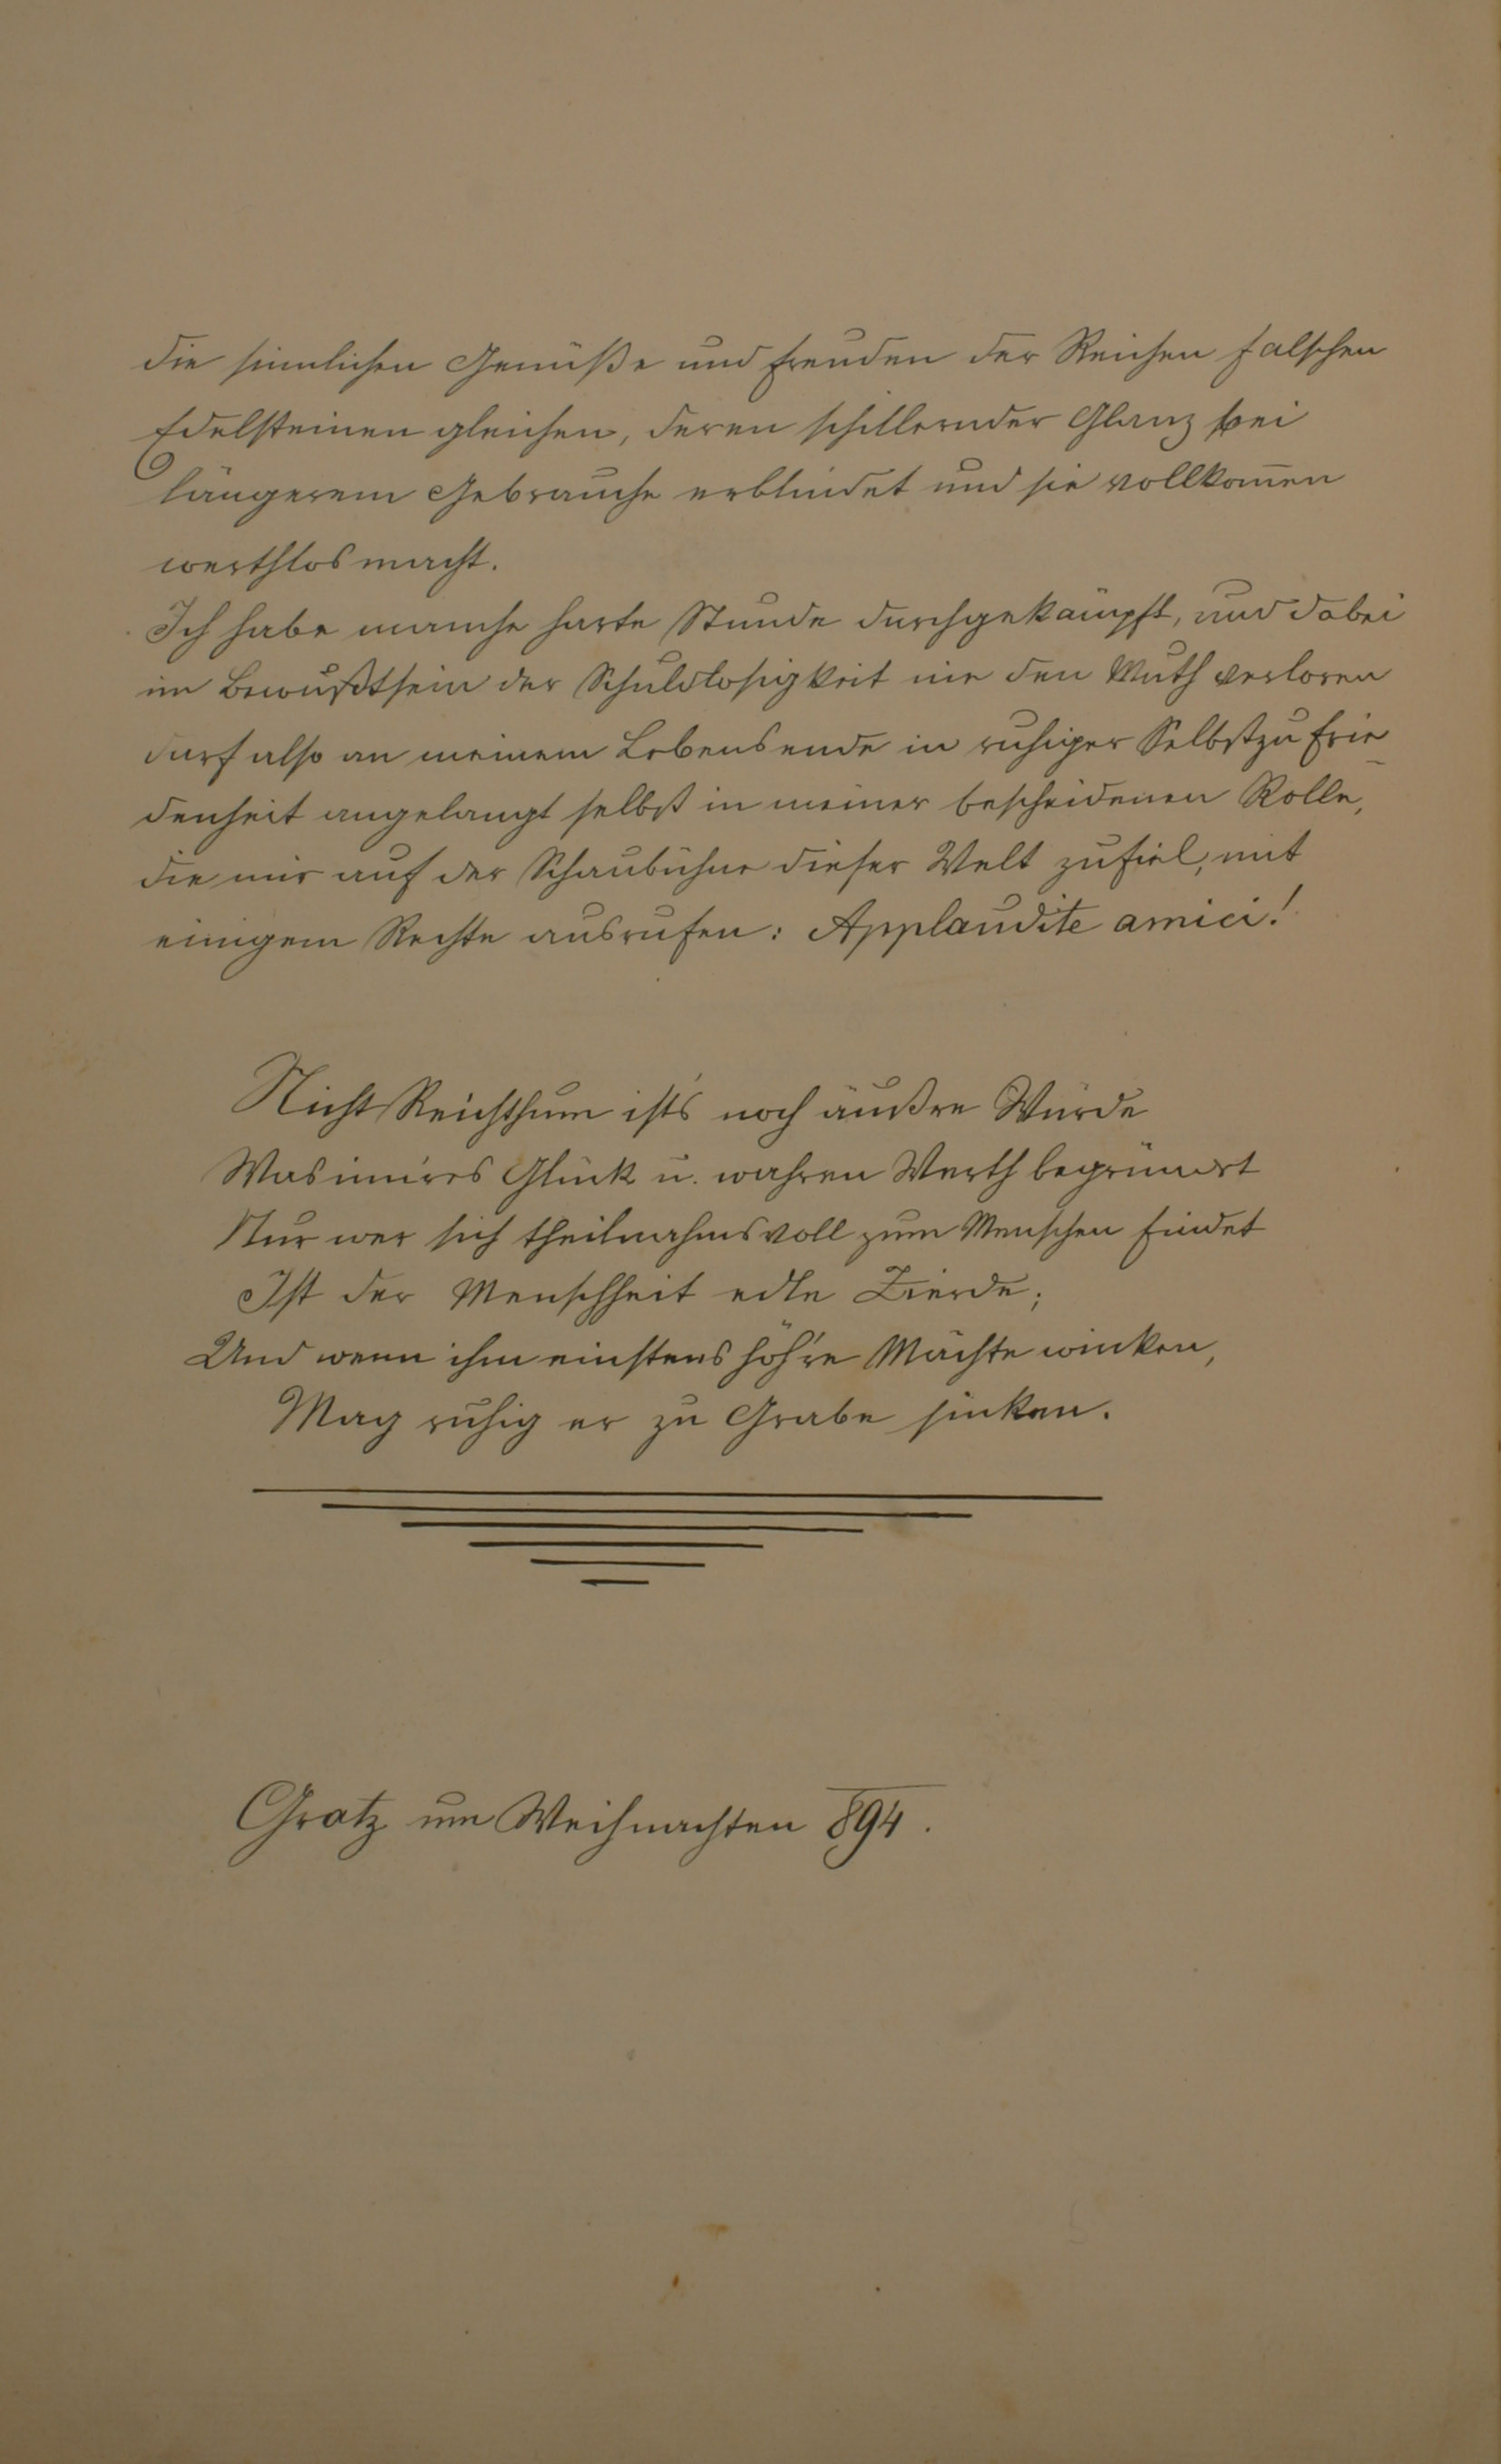 die sinnlichen Genüße und Freuden der Reichen falschen
Edelsteinen gleichen, deren schillernder Glanz bei
längerem Gebrauche erblindet und sie vollkom̄en
werthlos macht.
Ich habe manche harte Stunde durchgekämpft, und dabei
im Bewußtsein der Schuldlosigkeit nie den Muth verloren
darf also an meinem Lebensende in ruhiger Selbstzufrie-
denheit angelangt selbst in meiner bescheidenen Rolle,
die mir auf der Schaubühne dieser Welt zufiel, mit
einigem Rechte ausrufen: Applaudite amici!
Nicht Reichthum ist's noch äußre Würde
Was inn'res Glück u. wahren Werth begründet
Nur wer sich theilnahmsvoll zum Menschen findet
Ist der Menschheit edle Zierde;
Und wenn ihm einstens höh're Mächte winken,
Mag ruhig er zu Grabe sinken.
Gratz um Weihnachten 894.